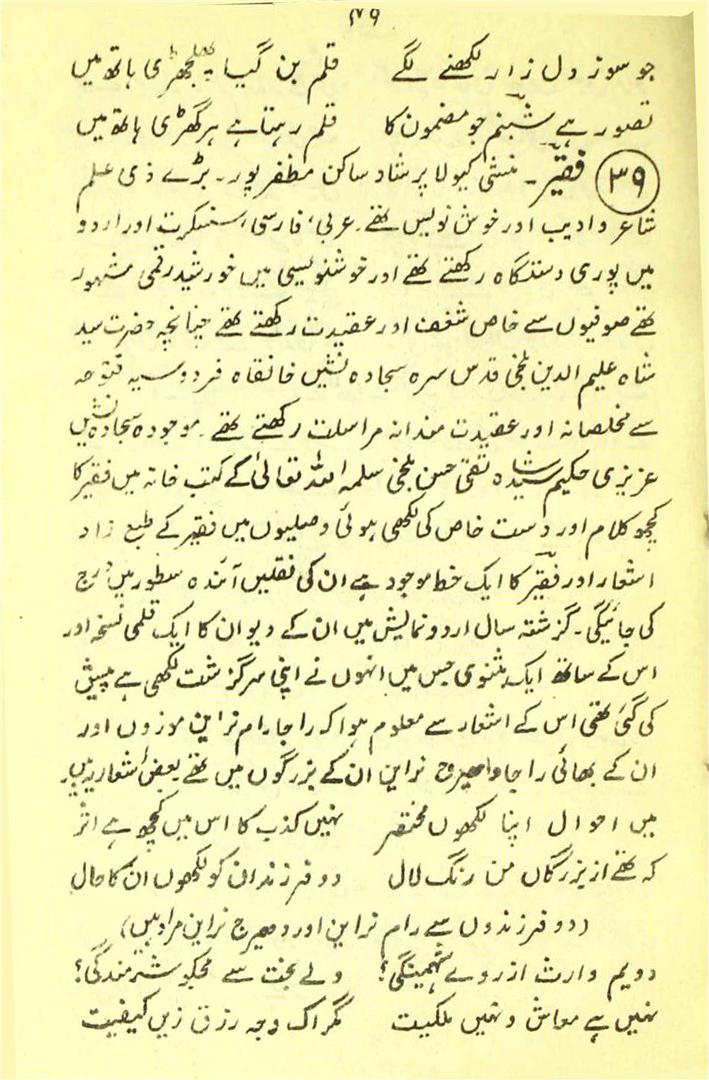 ۱۷۶
جو سوز دل زار لکھنے لگے قلم بن گیا پھلجھڑی ہاتھ میں
تصور ہے شبنم جو مضمون کا قلم رہتا ہے ہر گھڑی ہاتھ میں
(۳۹) فقیر۔ منشی کیولا پرشاد ساکن مظفر پور۔ بڑے ذی علم
شاعر و ادیب اور خوش نویس تھے۔ عربی، فارسی، سنسکرت اور اردو
میں پوری دستگاہ رکھتے تھے اور خوشنویسی میں خورشید رقمی مشہور
تھے صوفیوں سے خاص شغف اور عقیدت رکھتے تھے چنانچہ حضرت سید
شاہ علیم الدین بلخی قدس سرہ سجادہ نشیں خانقاہ فردوسیہ فتوحہ
سے مخلصانہ اور عقیدت مندانہ مراسلت رکھتے تھے۔ موجودہ سجادہ نشیں
عزیزی حکیم سید شاہ تقی حسن بلخی سلمہ اللہ تعالیٰ کے کتب خانہ میں فقیر کا
کچھ کلام اور دست خاص کی لکھی ہوئی وصلیوں میں فقیر کے طبع زاد
اشعار اور فقیر کا ایک خط موجود ہے ان کی نقلیں آئندہ سطور میں درج
کی جائیگی۔ گزشتہ سال اردو نمایش میں ان کے دیوان کا ایک قلمی نسخہ اور
اس کے ساتھ ایک مثنوی جس میں انہوں نے اپنی سرگزشت لکھی ہے پیش
کی گئی تھی اس کے اشعار سے معلوم ہوا کہ راجا رام نراین موزوں اور
ان کے بھائی راجا دھیرج نراین ان کے بزرگوں میں تھے بعض اشعار یہ ہیں۔
میں احوال اپنا لکھوں مختصر نہیں کذب کا اس میں کچھ ہے اثر
کہ تھے از بزرگان من رنگ لال دو فرزندان کو لکھوں ان کا حال
(دو فرزندوں سے رام نراین اور دھیرج نراین مراد ہیں)
دویم وارث از روے ؟ ولے بخت سے مجکو شرمندگی؟
نہیں ہے معاش و نہیں ملکیت مگر اک وجہ رزق زیں کیفیت